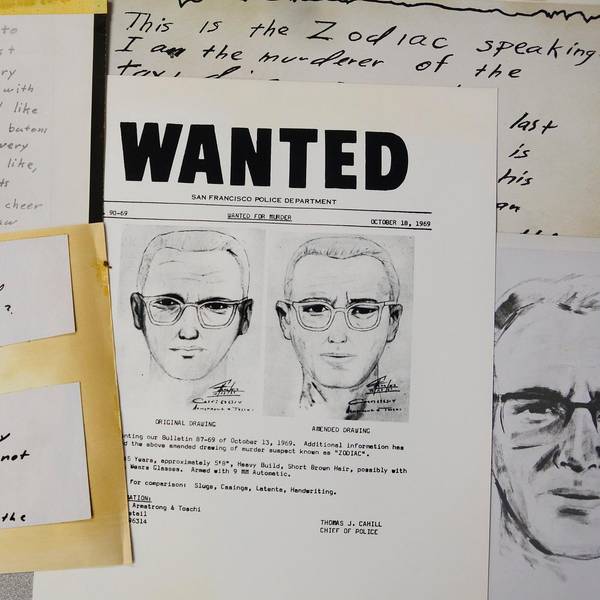 to
st
ry
with
like
butons
very
like,
ts
cheer
aw
This is the Zodiac speaking.
I am the murderer of the
last
is
his
an
WANTED
SAN FRANCISCO POLICE DEPARTMENT
90-69 WANTED FOR MURDER OCTOBER 18, 1969
ORIGINAL DRAWING AMENDED DRAWING
nting our Bulletin 87-69 of October 13, 1969. Additional information has
d the above amended drawing of murder suspect known as "ZODIAC".
5 Years, approximately 5'8", Heavy Build, Short Brown Hair, possibly with
Wears Glasses. Armed with 9 MM Automatic.
for comparison: Slugs, Casings, Latents, Handwriting.
ATION:
Armstrong & Toschi
etail
96314
THOMAS J. CAHILL
CHIEF OF POLICE
?
y
not
the